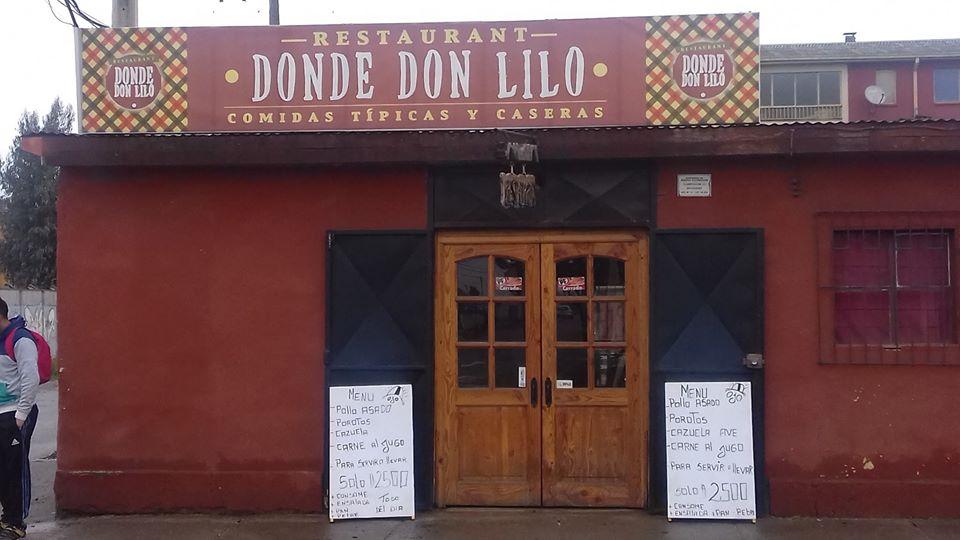 RESTAURANT
DONDE DON LILO
COMIDAS TÍPICAS Y CASERAS
RESTAURANT
DONDE
DON LILO
RESTAURANT
DONDE
DON LILO
Cerrado
Cerrado
MENU
- Pollo ASADO
- POROTOS
- CAZUELA
- CARNE Al JUGO
- PARA SERVIR O llEVAR
SOlO A 2500
+ CONSOME
+ ENSALADA TODO
+ PAN DEL DIA
MENU
- Pollo ASADO
- POROTOS
- CAZUELA AVE
- CARNE Al JUGO
PARA SERVIR O llEVAR
SOlO A 2500
+ CONSOME
+ ENSALADA + PAN